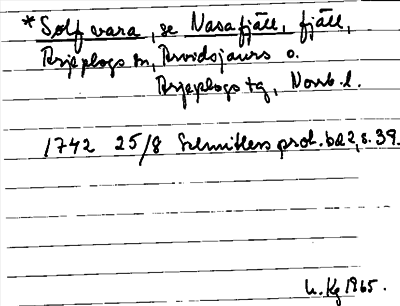 *Solfvara, se Nasafjäll, fjäll,
Arjeplogs sn, Arvidsjaurs o.
Arjeplogs tg, Norrb. l.
1742 25/8 Schnitlers prot. bd 2, s. 39.
L. Kg 1965.